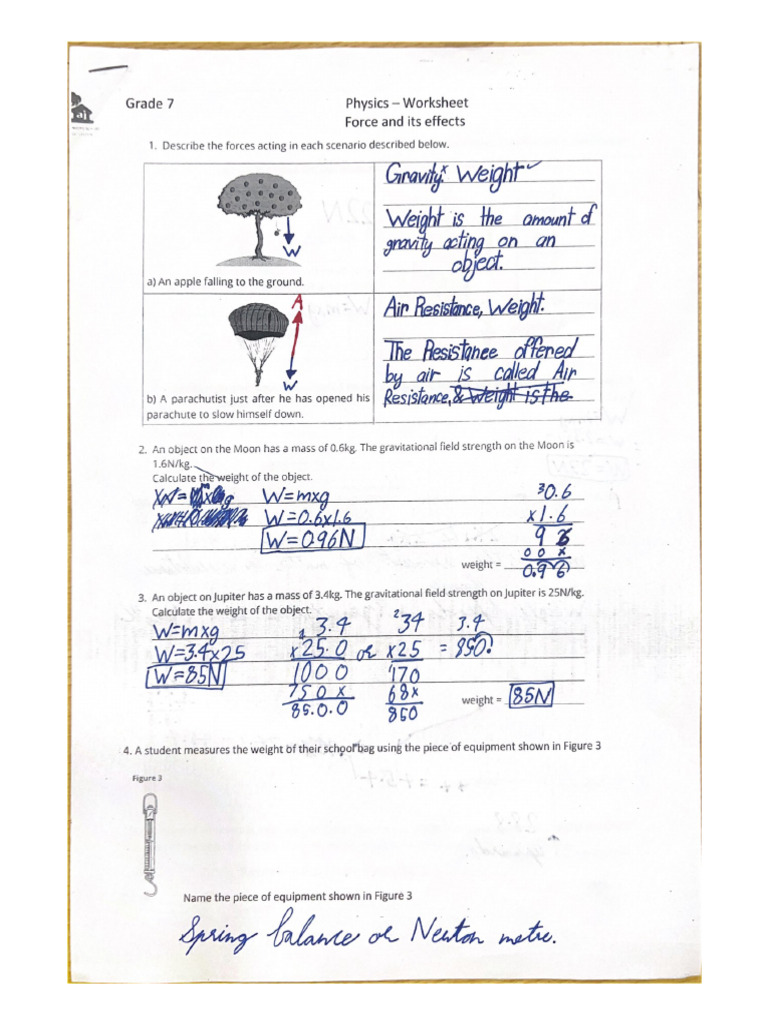 Grade 7
Physics – Worksheet
Force and its effects
1. Describe the forces acting in each scenario described below.
W
a) An apple falling to the ground.
Gravity x Weight ✓
Weight is the amount of
gravity acting on an
object.
A
W
b) A parachutist just after he has opened his
parachute to slow himself down.
Air Resistance, Weight.
The Resistance offered
by air is called Air
Resistance, & Weight is the
2. An object on the Moon has a mass of 0.6kg. The gravitational field strength on the Moon is
1.6N/kg.
Calculate the weight of the object.
W=mxg
W=0.6x1.6
W=0.96N
30.6
x1.6
9 6
0 0 x
0.9 6
weight =
3. An object on Jupiter has a mass of 3.4kg. The gravitational field strength on Jupiter is 25N/kg.
Calculate the weight of the object.
W=mxg
W=3.4x25
W=85N
3.4
x25.0 or
1000
750x
85.0.0
2
34
x25
170
68x
850
3.4
= 850.
weight = 85N
4. A student measures the weight of their school bag using the piece of equipment shown in Figure 3
Figure 3
Name the piece of equipment shown in Figure 3
Spring balance or Newton metre.